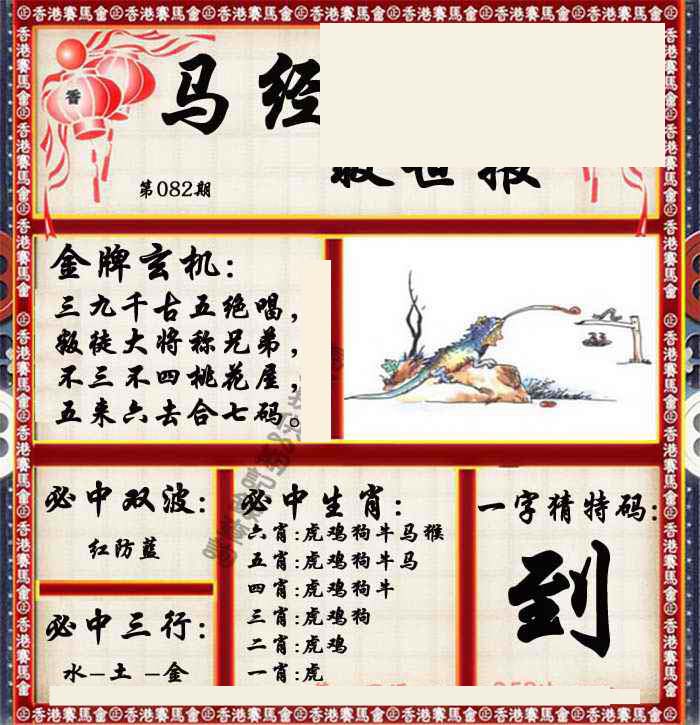 马经
救世报
第082期
香
金牌玄机:
三九千古五绝唱,
叛徒大将称兄弟,
不三不四桃花屋,
五来六去合七码。
必中双波:
红防蓝
必中三行:
水-土-金
必中生肖:
六肖:虎鸡狗牛马猴
五肖:虎鸡狗牛马
四肖:虎鸡狗牛
三肖:虎鸡狗
二肖:虎鸡
一肖:虎
一字猜特码:
到
香港賽馬會